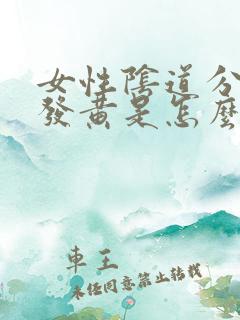 女性陰道分
發黃是怎麼
車王
未經同意禁止轉載